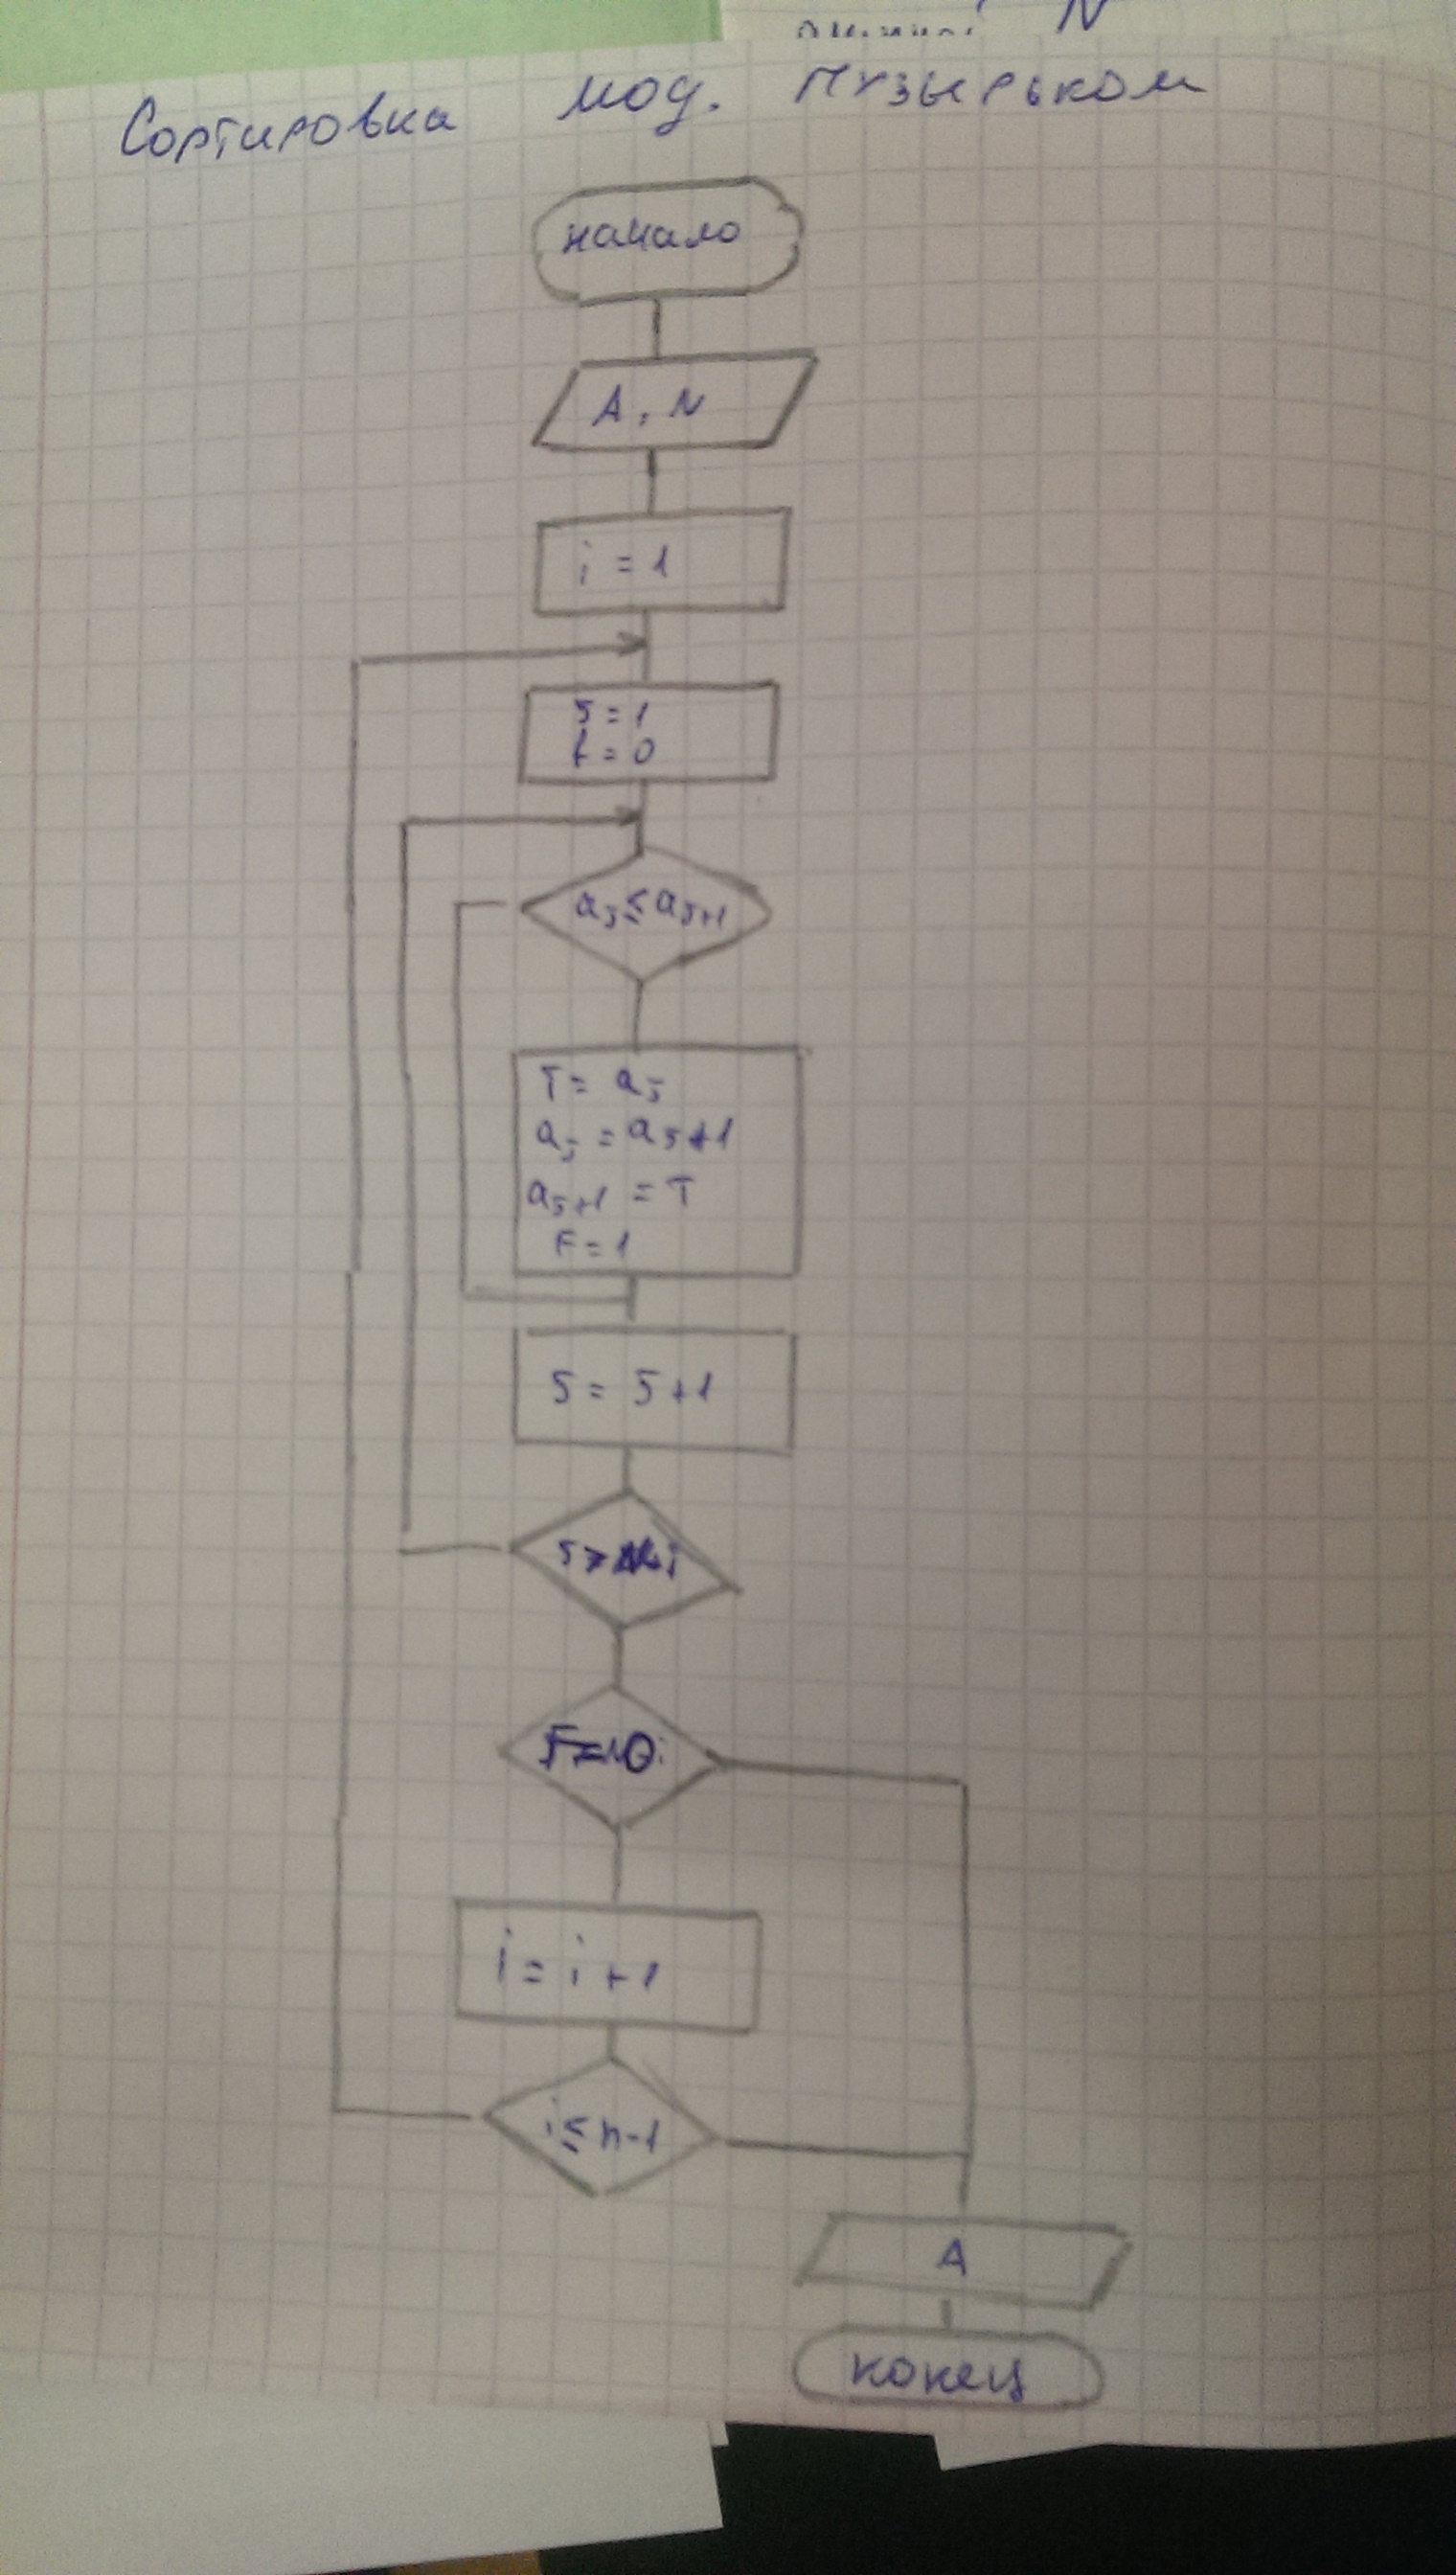 N
Сортировка мод. пузырьком
начало
A, N
i = 1
J = 1
f = 0
aJ ≤ aJ+1
T = aJ
aJ = aJ+1
aJ+1 = T
F = 1
J = J+1
F=0
i = i+1
i ≤ n-1
A
конец